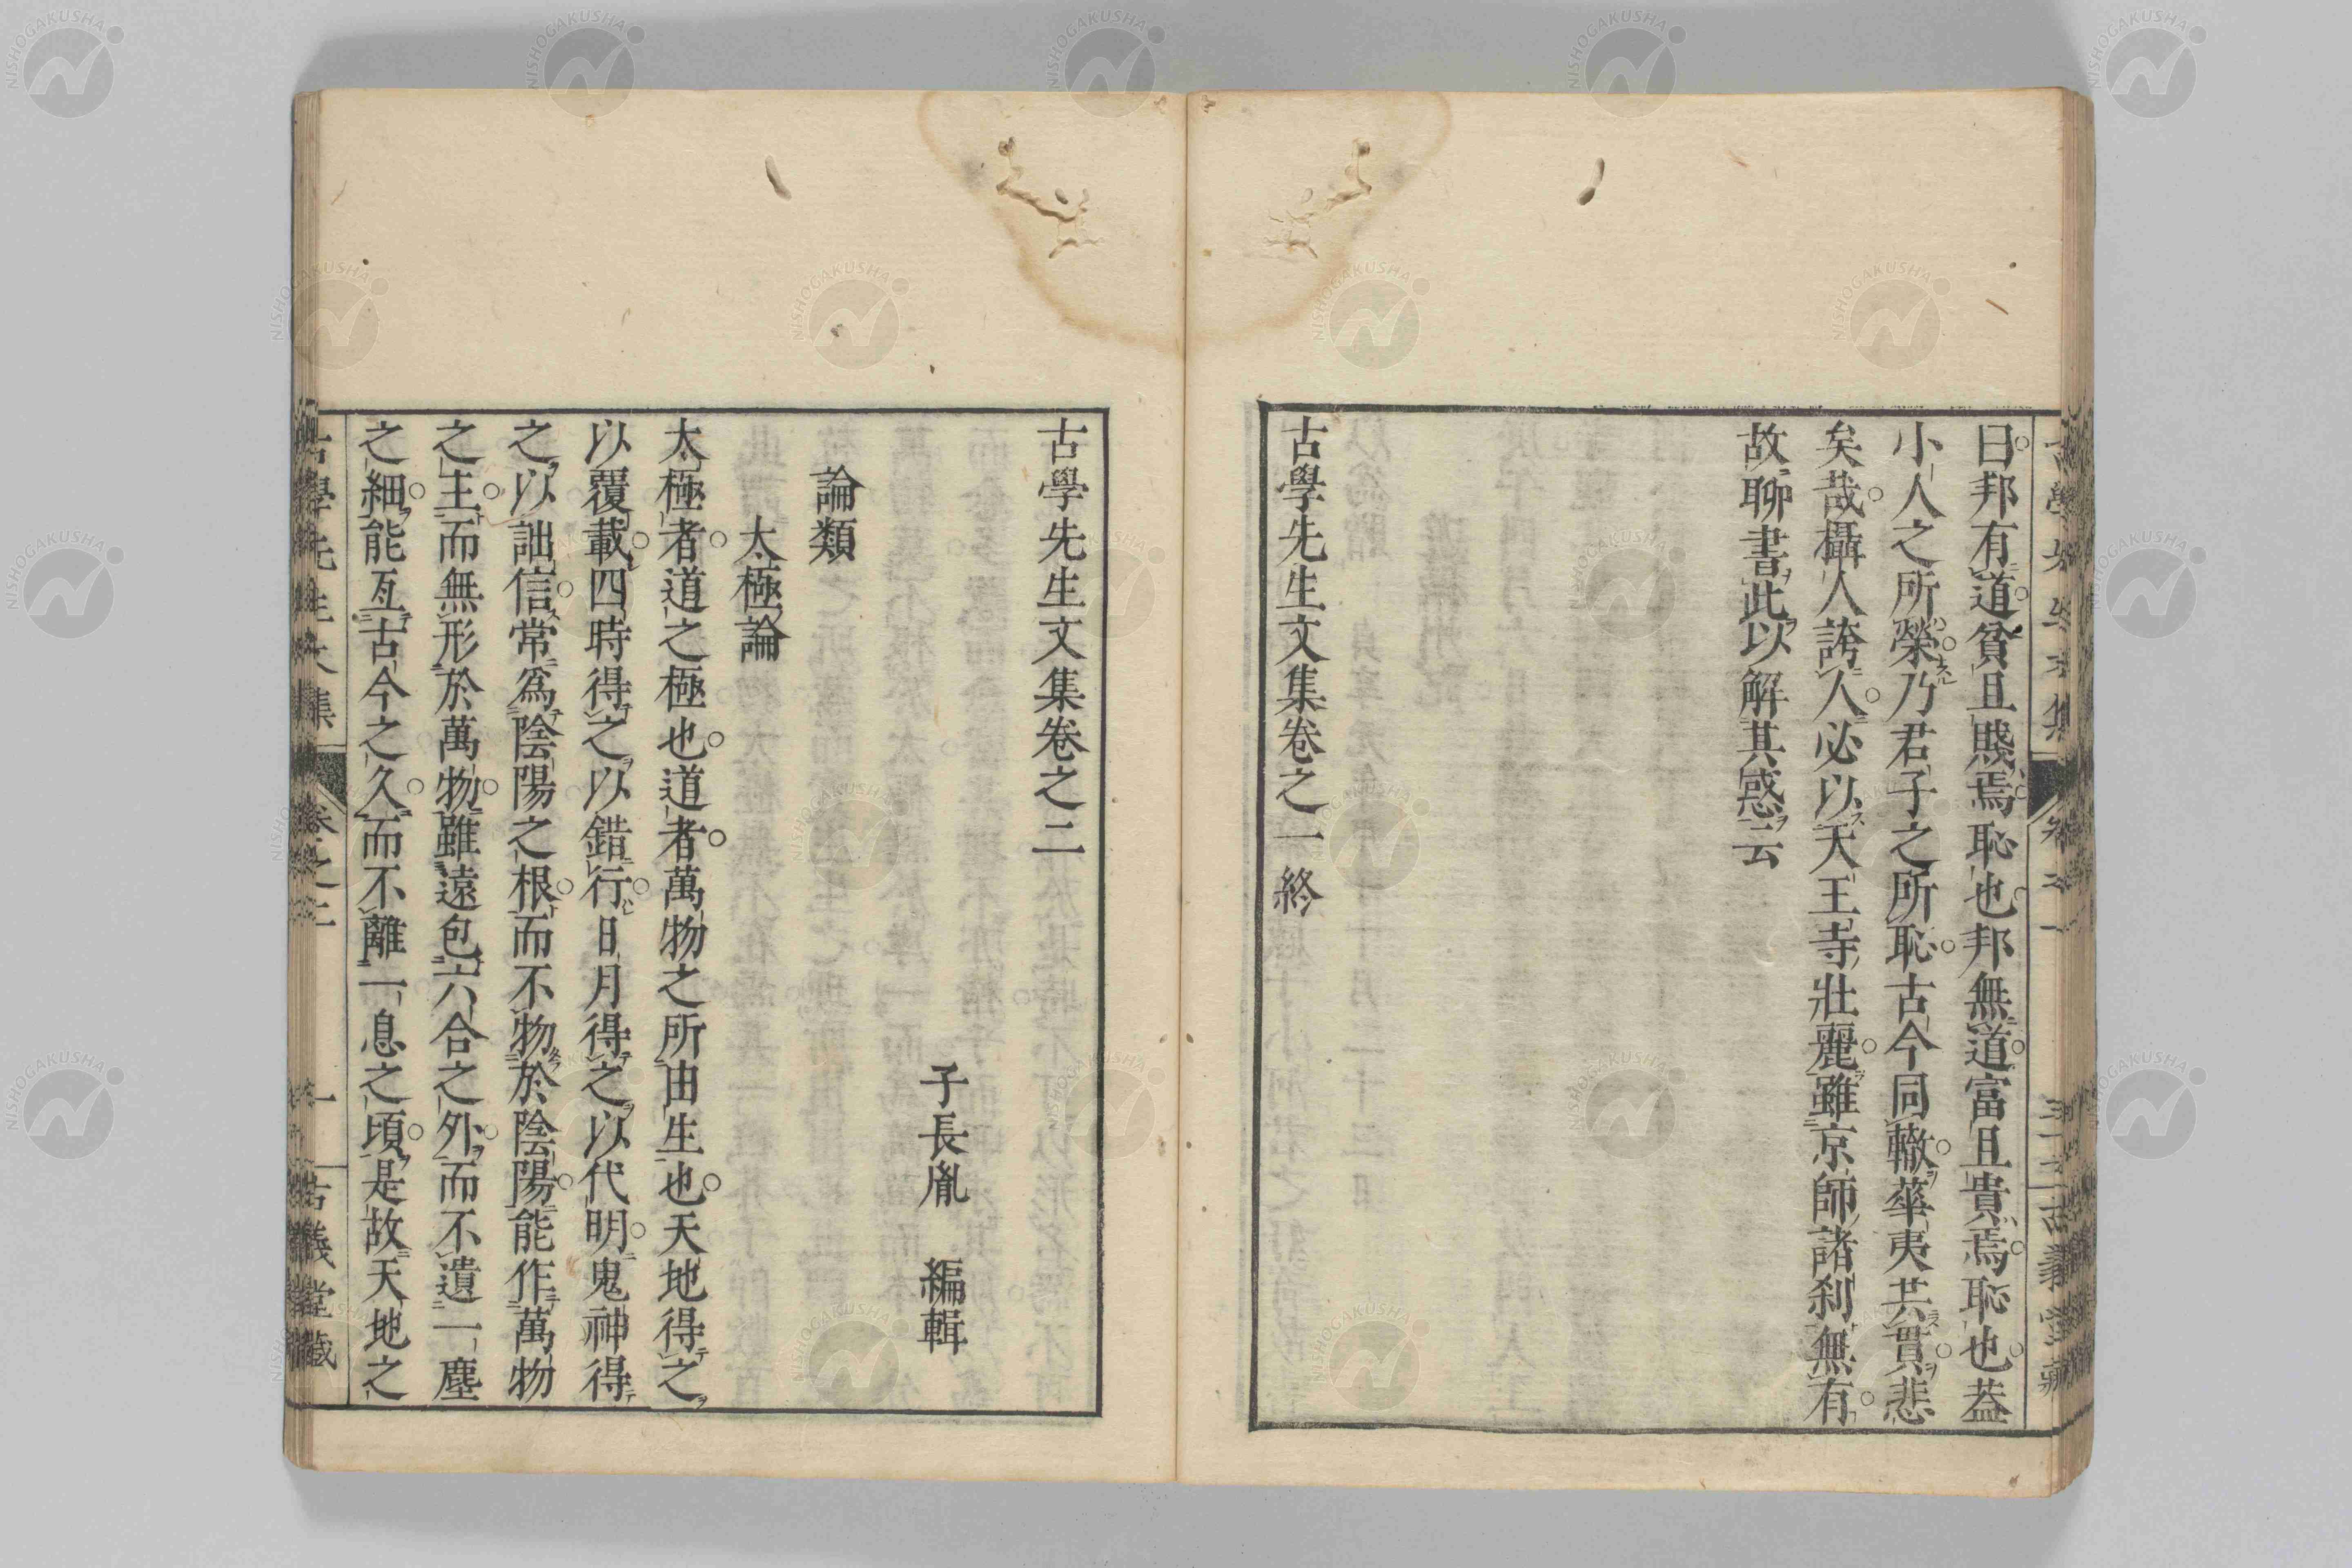 曰邦有道貧且賤焉恥也邦無道富且貴焉恥也葢
小人之所榮乃君子之所恥古今同轍華夷共貫悲
矣哉欇人誇人必以天王寺壯麗雖京師諸刹無有
故聊書此以解其惑云
古學先生文集卷之一終
古學先生文集卷之二
子長胤 編輯
論類
太極論
太極者道之極也道者萬物之所由生也天地得之
以覆載四時得之以錯行日月得之以代明鬼神得
之以詘信常爲陰陽之根而不物於陰陽能作萬物
之主而無形於萬物雖遠包六合之外而不遺一塵
之細能亙古今之久而不離一息之頃是故天地之
古學先生文集 卷之二 一 古義堂藏
NISHOGAKUSHA